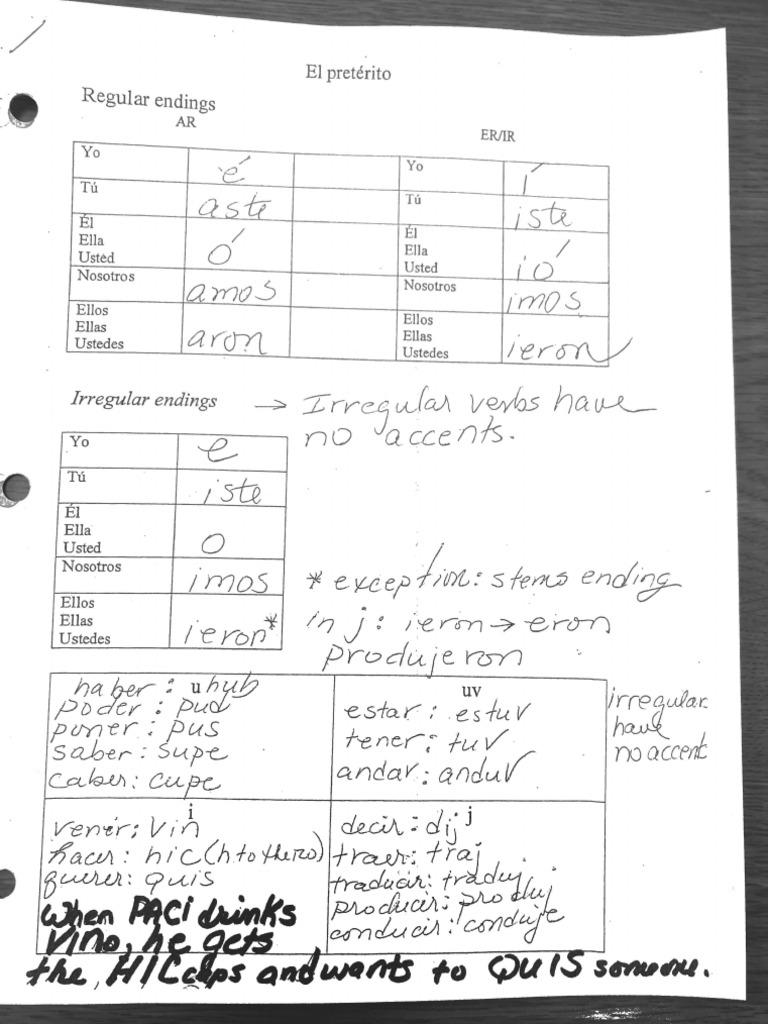 El pretérito
Regular endings
AR
ER/IR
Yo é Yo í
Tú aste Tú iste
Él Él
Ella Ella
Usted ó Usted ió
Nosotros amos Nosotros imos
Ellos Ellos
Ellas Ellas
Ustedes aron Ustedes ieron
Irregular endings → Irregular verbs have
no accents.
Yo e
Tú iste
Él
Ella
Usted o
Nosotros imos
Ellos
Ellas
Ustedes ieron*
* exception: stems ending
in j: ieron → eron
produjeron
u
haber: hub
poder: pud
poner: pus
saber: supe
caber: cupe
uv
estar: estuv
tener: tuv
andar: anduv
irregular
have
no accent
i
venir: vin
hacer: hic (h to the zo)
querer: quis
j
decir: dij
traer: traj
traducir: traduj
producir: produj
conducir: conduje
When PACi drinks
Vino, he gets
the HICcups and wants to QUIS someone.